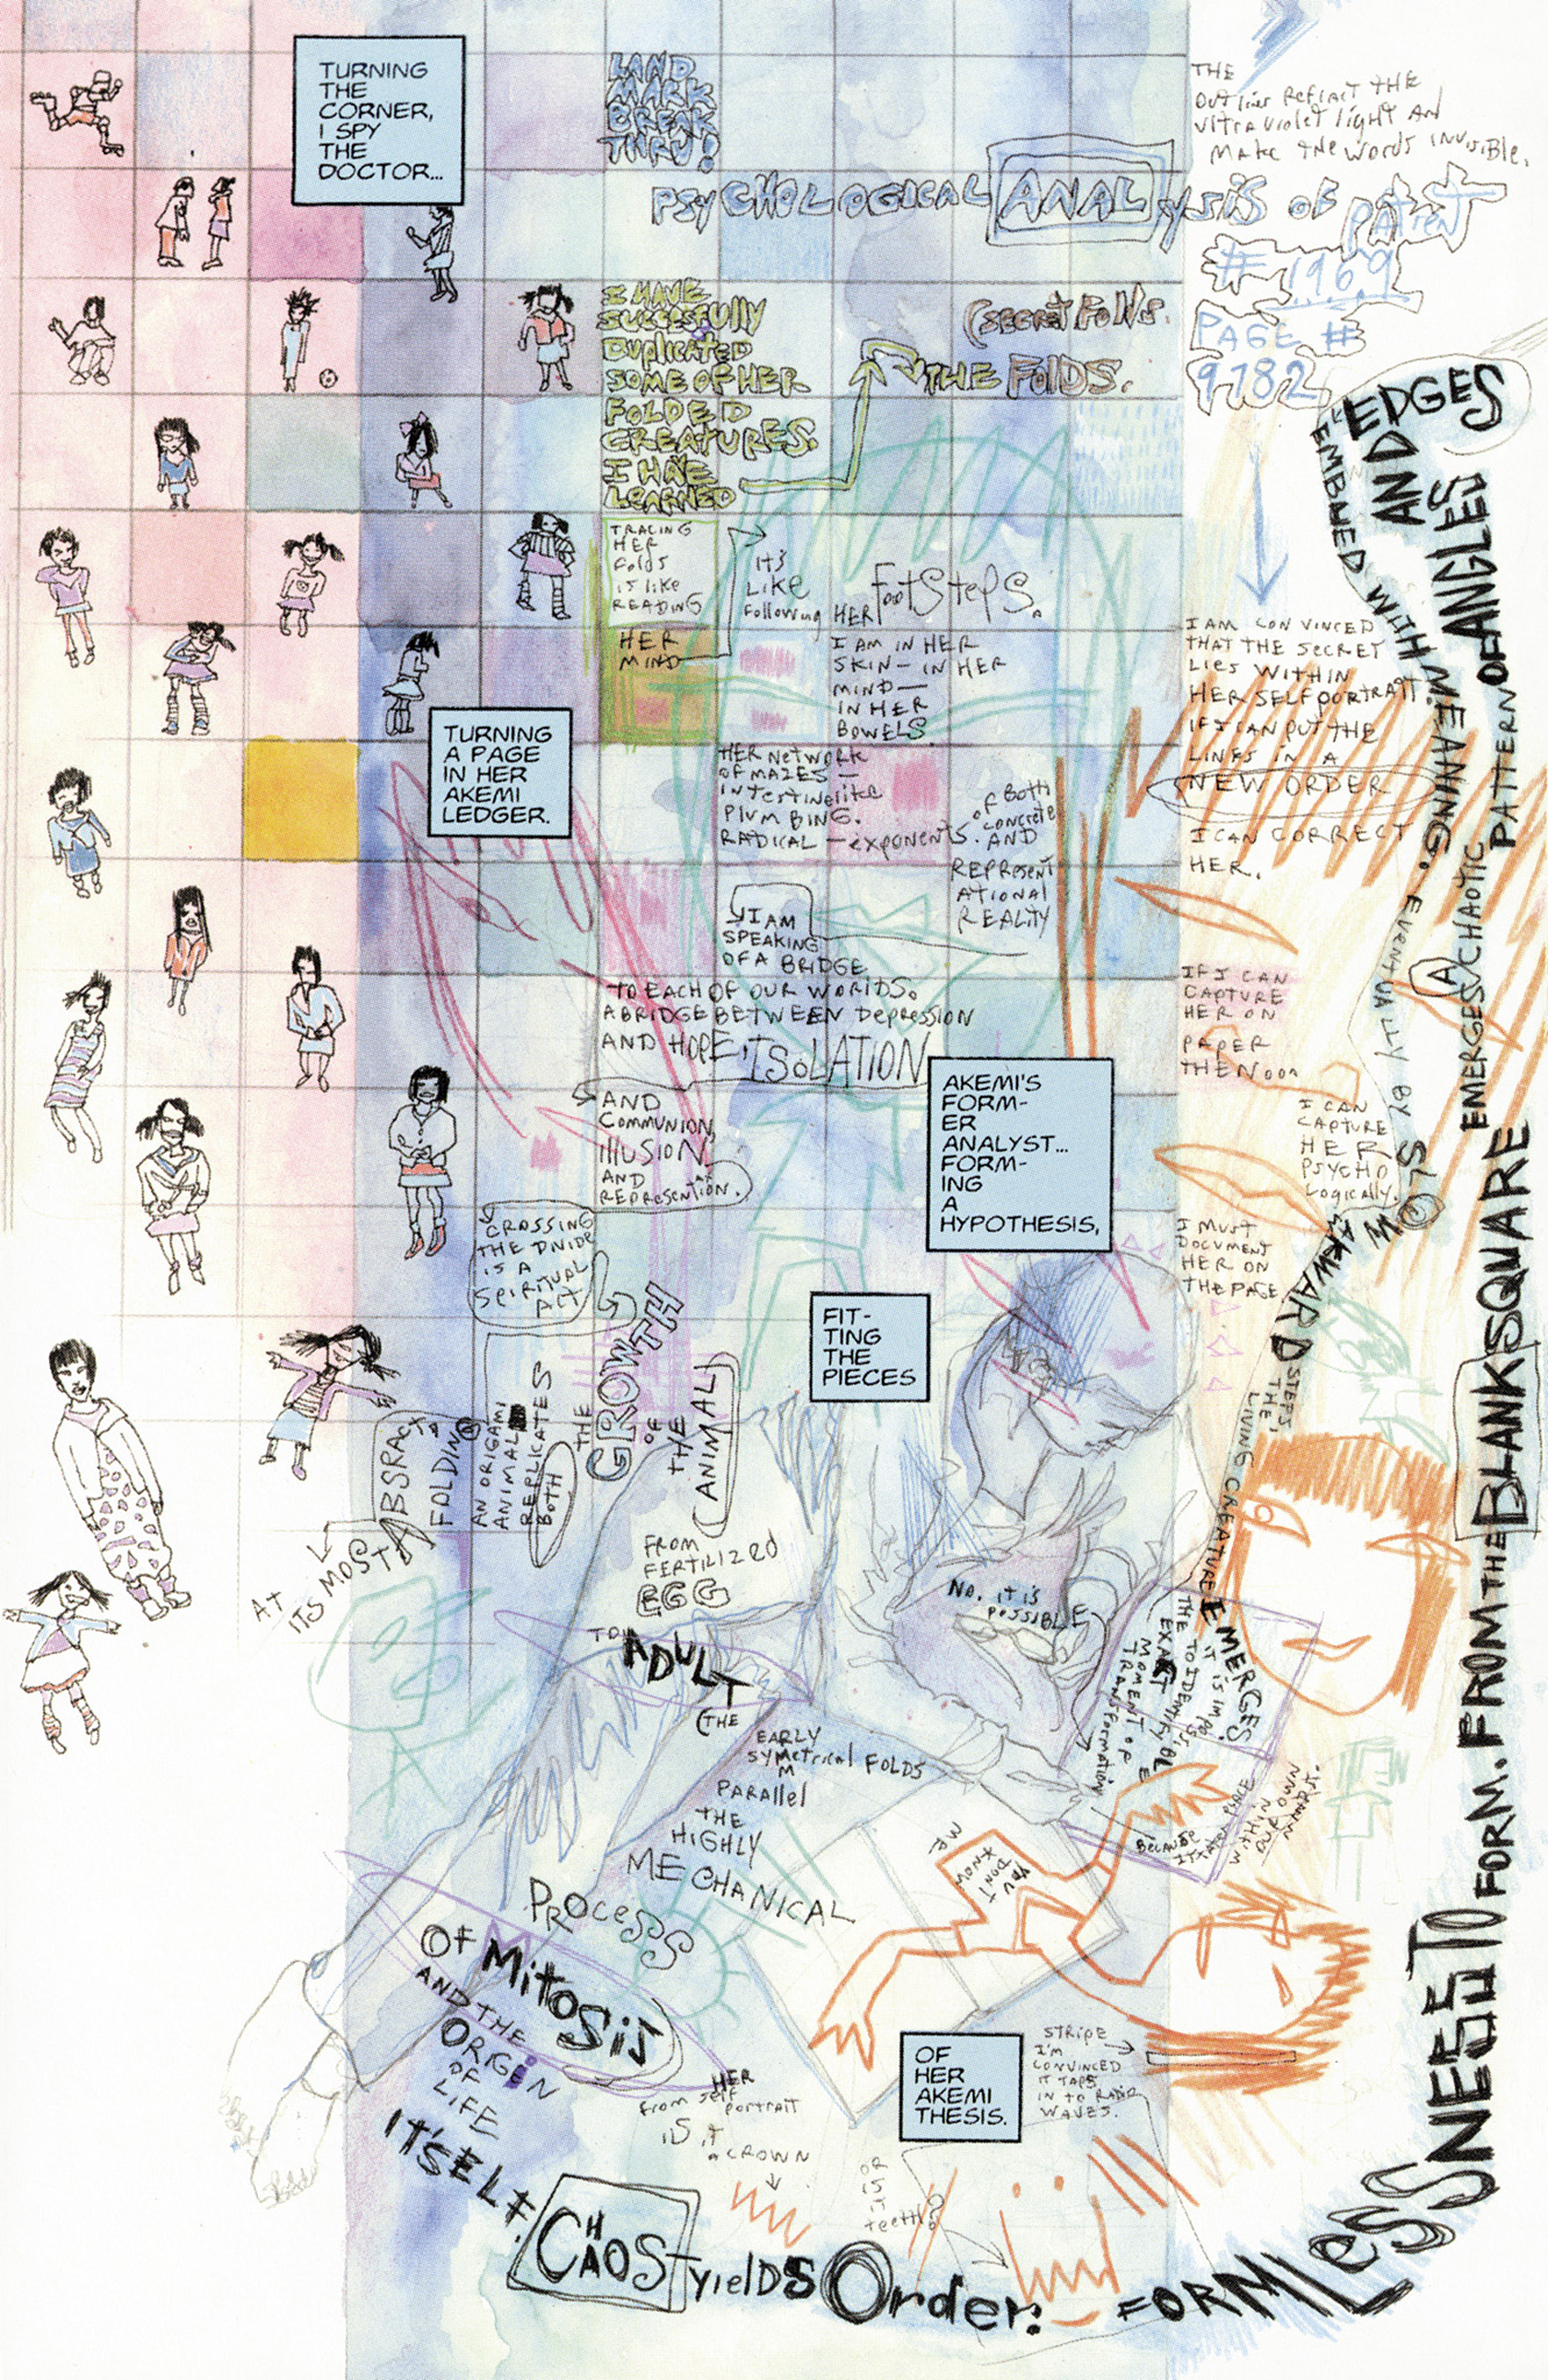 TURNING
THE
CORNER,
I SPY
THE
DOCTOR...
LAND
MARK
BREAK
THRU!
THE
OUTLINES REFRACT THE
ULTRAVIOLET LIGHT AND
MAKE THE WORDS INVISIBLE.
PSYCHOLOGICAL ANALYSIS OF PATIENT
# 1969
PAGE #
9782
I HAVE
SUCCESFULLY
DUPLICATED
SOME OF HER
FOLDED
CREATURES.
I HAVE
LEARNED
THE FOLDS.
TRACING
HER
FOLDS
IS LIKE
READING
HER
MIND
IT'S
LIKE
FOLLOWING
HER FOOTSTEPS.
I AM IN HER
SKIN — IN HER
MIND —
IN HER
BOWELS.
HER NETWORK
OF MAZES —
INTESTINELIKE
PLUMBING.
RADICAL — EXPONENTS
OF BOTH
CONCRETE
AND
REPRESENT
ATIONAL
REALITY
I AM
SPEAKING
OF A BRIDGE
TO EACH OF OUR WORLDS.
A BRIDGE BETWEEN DEPRESSION
AND HOPE, ISOLATION
AND
COMMUNION,
ILLUSION
AND
REPRESENTATION.
CROSSING
THE DIVIDE
IS A
SPIRITUAL
ACT
TURNING
A PAGE
IN HER
AKEMI
LEDGER.
AKEMI'S
FORM-
ER
ANALYST...
FORM-
ING
A
HYPOTHESIS,
FIT-
TING
THE
PIECES
I AM CONVINCED
THAT THE SECRET
LIES WITHIN
HER SELFPORTRAIT.
IF I CAN PUT THE
LINES IN A
NEW ORDER
I CAN CORRECT
HER.
IF I CAN
CAPTURE
HER ON
PAPER
THEN
I CAN
CAPTURE
HER
PSYCHO
LOGICALLY.
I MUST
DOCUMENT
HER ON
THE PAGE
AT
ITS MOST
ABSRACT
FOLDING
AN ORIGAMI
ANIMAL
REPLICATES
BOTH
THE
GROWTH
OF
THE
ANIMAL
FROM
FERTILIZED
EGG
TO ADULT
(THE
EARLY
SYMETRICAL FOLDS
PARALLEL
THE
HIGHLY
MECHANICAL
PROCESS
OF MITOSIS
AND THE
ORIGEN
OF
LIFE
IT'SELF.
CHAOS YIELDS ORDER.
FORMLESSNESS TO FORM. FROM THE BLANK SQUARE
EMERGES A CHAOTIC
PATTERN OF ANGLES
AND EDGES
EMBUED WITH MEANING.
EVENTUALLY BY SLOW
AKWARD STEPS
THE
LIVING CREATURE EMERGES.
IT IS IMPOSSIBLE
TO IDENTIFY
THE EXACT
MOMENT OF
TRANSFORMATION
BECAUSE
IT TAKES PLACE
WITHIN
OUR OWN
MINDS.
NO, IT IS
POSSIBLE
YOU
DON'T
KNOW
ME
OF
HER
AKEMI
THESIS.
STRIPE
I'M
CONVINCED
IT TAPS
IN TO RADIO
WAVES.
FROM HER SELF
PORTRAIT
IS IT
A CROWN
OR
IS
IT
TEETH?